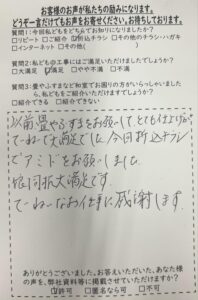 お客様のお声が私たちの励みになります。
どうぞ一言だけでもお寄せください。お待ちしております。
質問1：今回私どもをどちらでお知りになりましたか？
□リピート □ご紹介 ☑折込チラシ □その他のチラシ・ハガキ
□インターネット □その他(
質問2：私どもの工事にはご満足いただけましたでしょうか？
□大満足 ☑満足 □やや不満 □不満
質問3：畳やふすまなど和室でお困りの方がいらっしゃいましたら、私どもをご紹介いただけますでしょうか？
□紹介できる □紹介できない
以前畳やふすまをお願いしてとても仕上げが
てーねーで大満足でした 今回折込チラシ
でアミドをお願いしました
今回も大満足です。
てーねーなお仕事に感謝します。
ありがとうございました。お答えいただいた、あなた様
の声を、弊社資料等に掲載させていただけますか？
☑許可 □匿名なら可 □不可